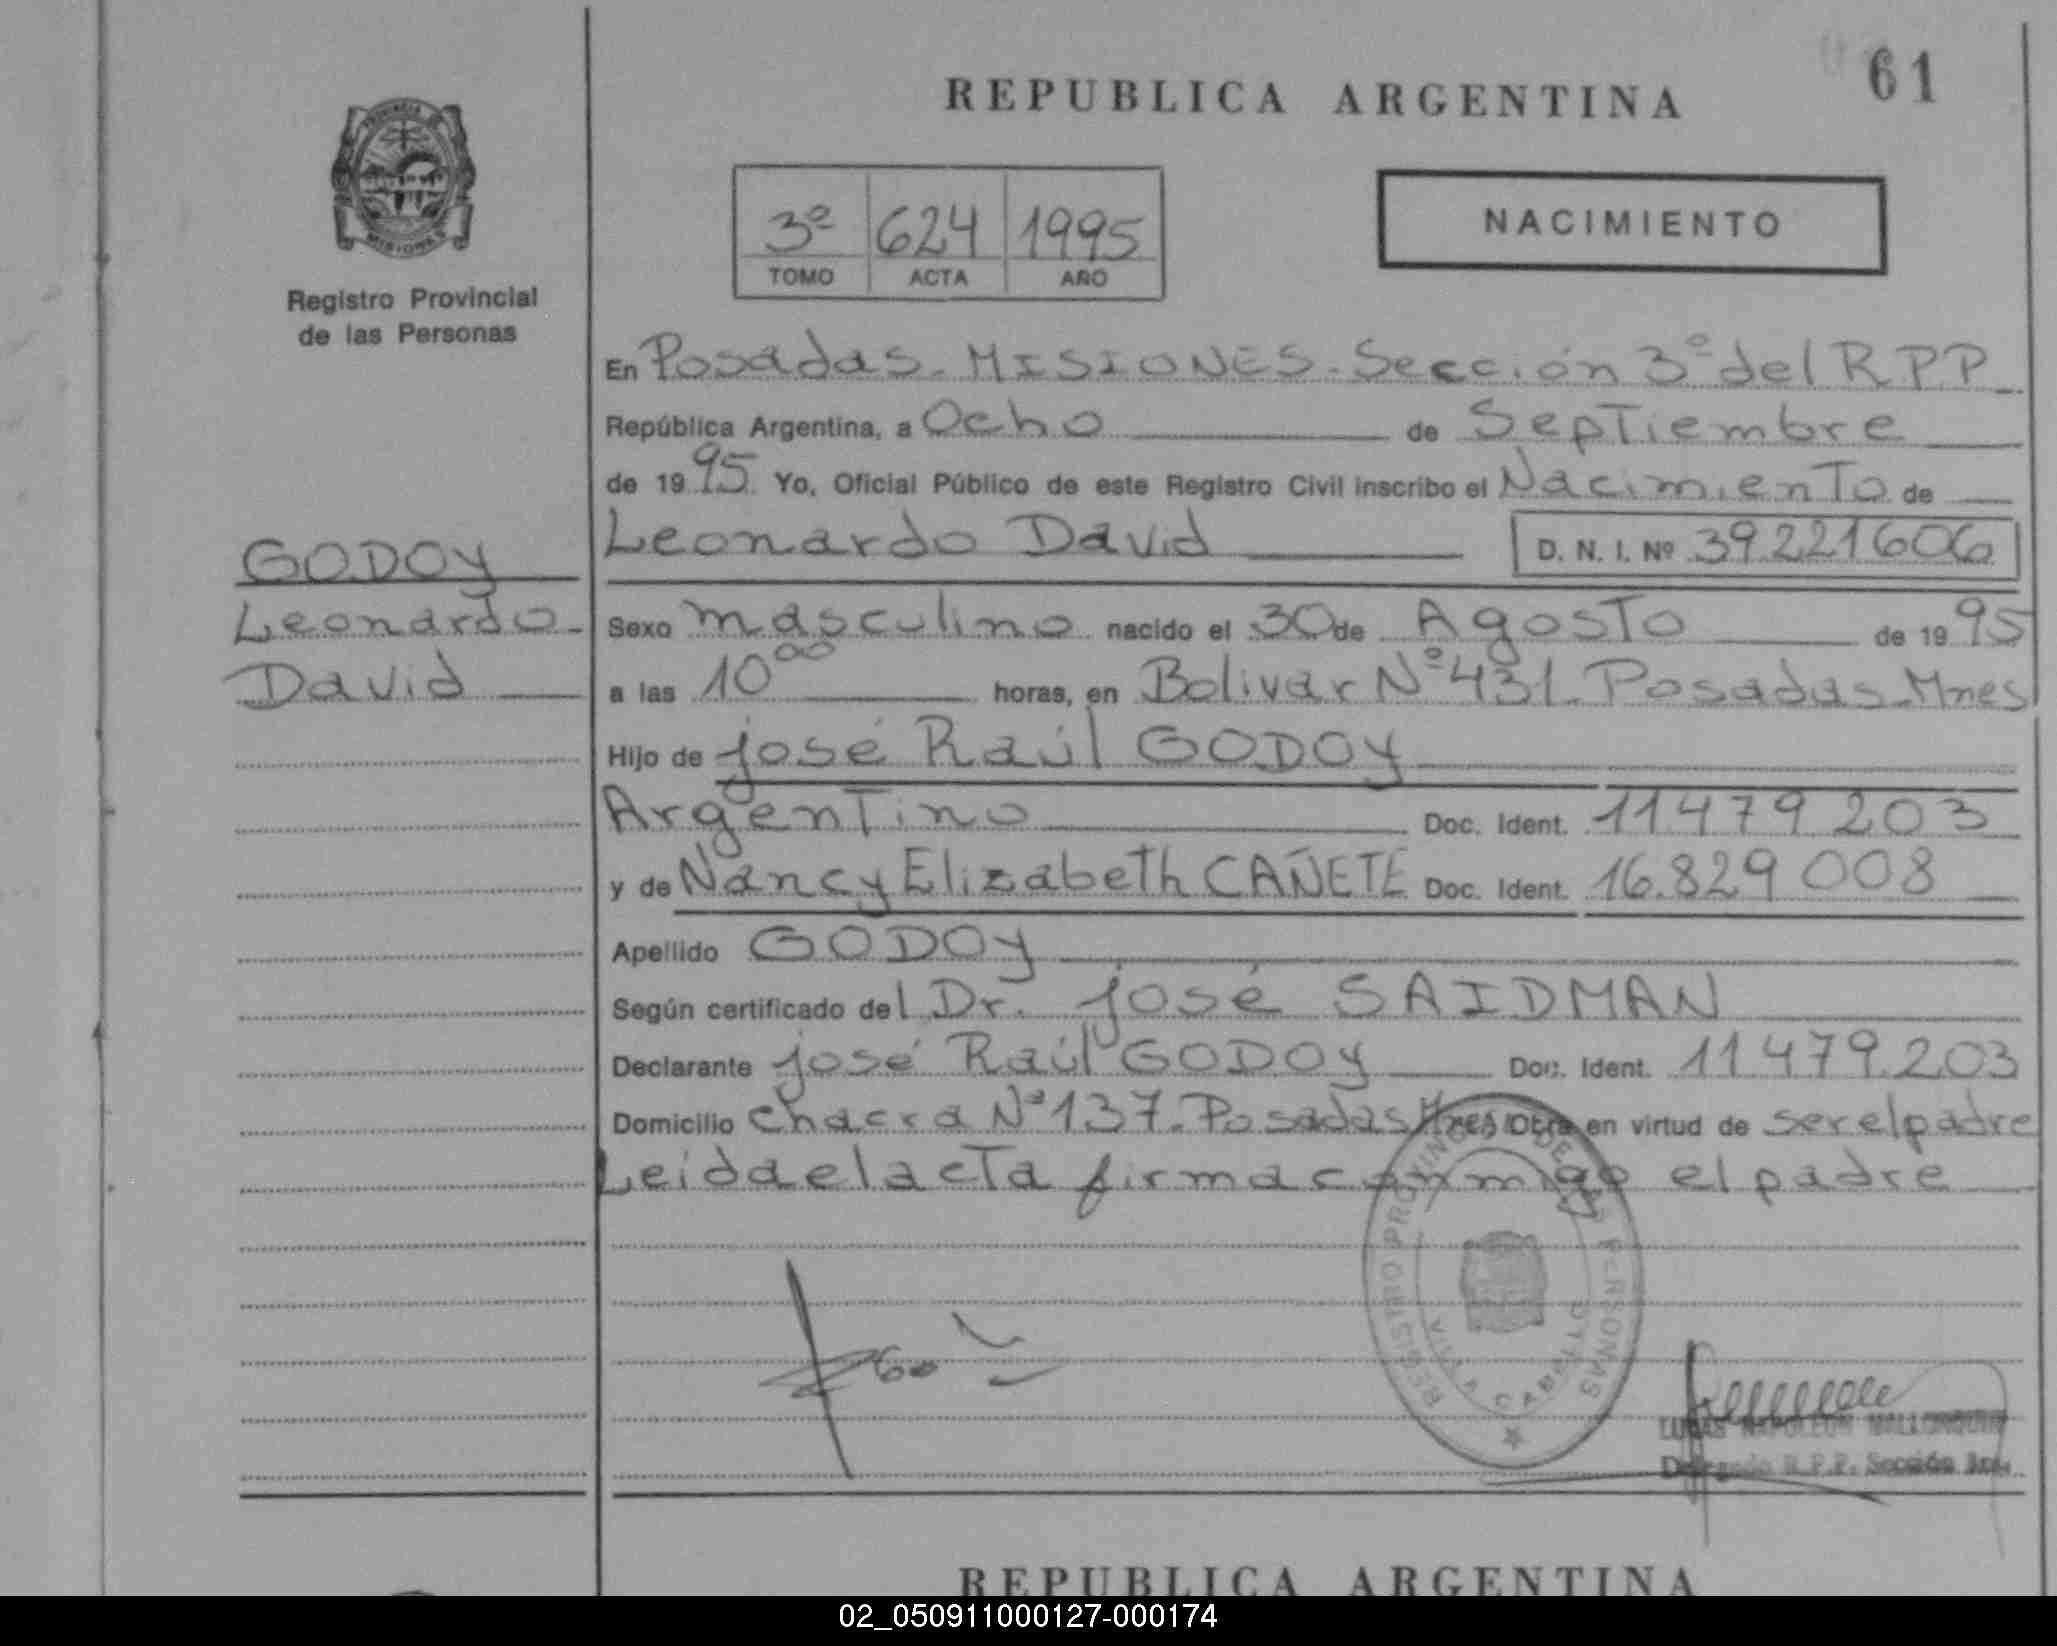 REPUBLICA ARGENTINA
61
PROVINCIA DE
MISIONES
Registro Provincial
de las Personas
3º 624 1995
TOMO ACTA AÑO
NACIMIENTO
En Posadas. MISIONES. Sección 3º del R P P
República Argentina, a Ocho de Septiembre
de 1995 Yo, Oficial Público de este Registro Civil inscribo el Nacimiento de
Leonardo David D. N. I. Nº 39.221606
GODOY
Leonardo
David
Sexo masculino nacido el 30 de Agosto de 1995
a las 10⁰⁰ horas, en Bolivar Nº 431. Posadas. Mnes
Hijo de josé Raúl GODOY
Argentino Doc. Ident. 11.479 203
y de Nancy Elizabeth CAÑETE Doc. Ident. 16.829 008
Apellido GODOY
Según certificado del Dr. josé SAIDMAN
Declarante josé Raúl GODOY Doc. Ident. 11 479.203
Domicilio chacra Nº 137. Posadas Mnes Obra en virtud de ser el padre
Leida el acta firma conmigo el padre
REGISTRO PROVINCIAL DE LAS PERSONAS
VILLA CABELLO
LUCAS NAPOLEON
Delegado R.P.P. Sección 3ra.
REPUBLICA ARGENTINA
02_050911000127-000174